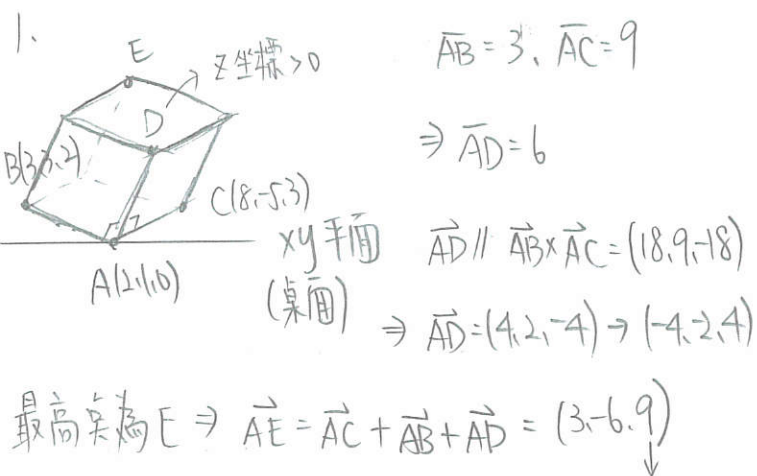 1、
E
Z坐標>0
D
B(3,3,2)
C(8,-5,3)
A(2,1,0)
xy平面
(桌面)
AB=3、AC=9
⇒ AD=6
AD // AB×AC=(18,9,-18)
⇒ AD=(4,2,-4)→(-4,-2,4)
最高点為E ⇒ AE=AC+AB+AD=(3,-6,9)